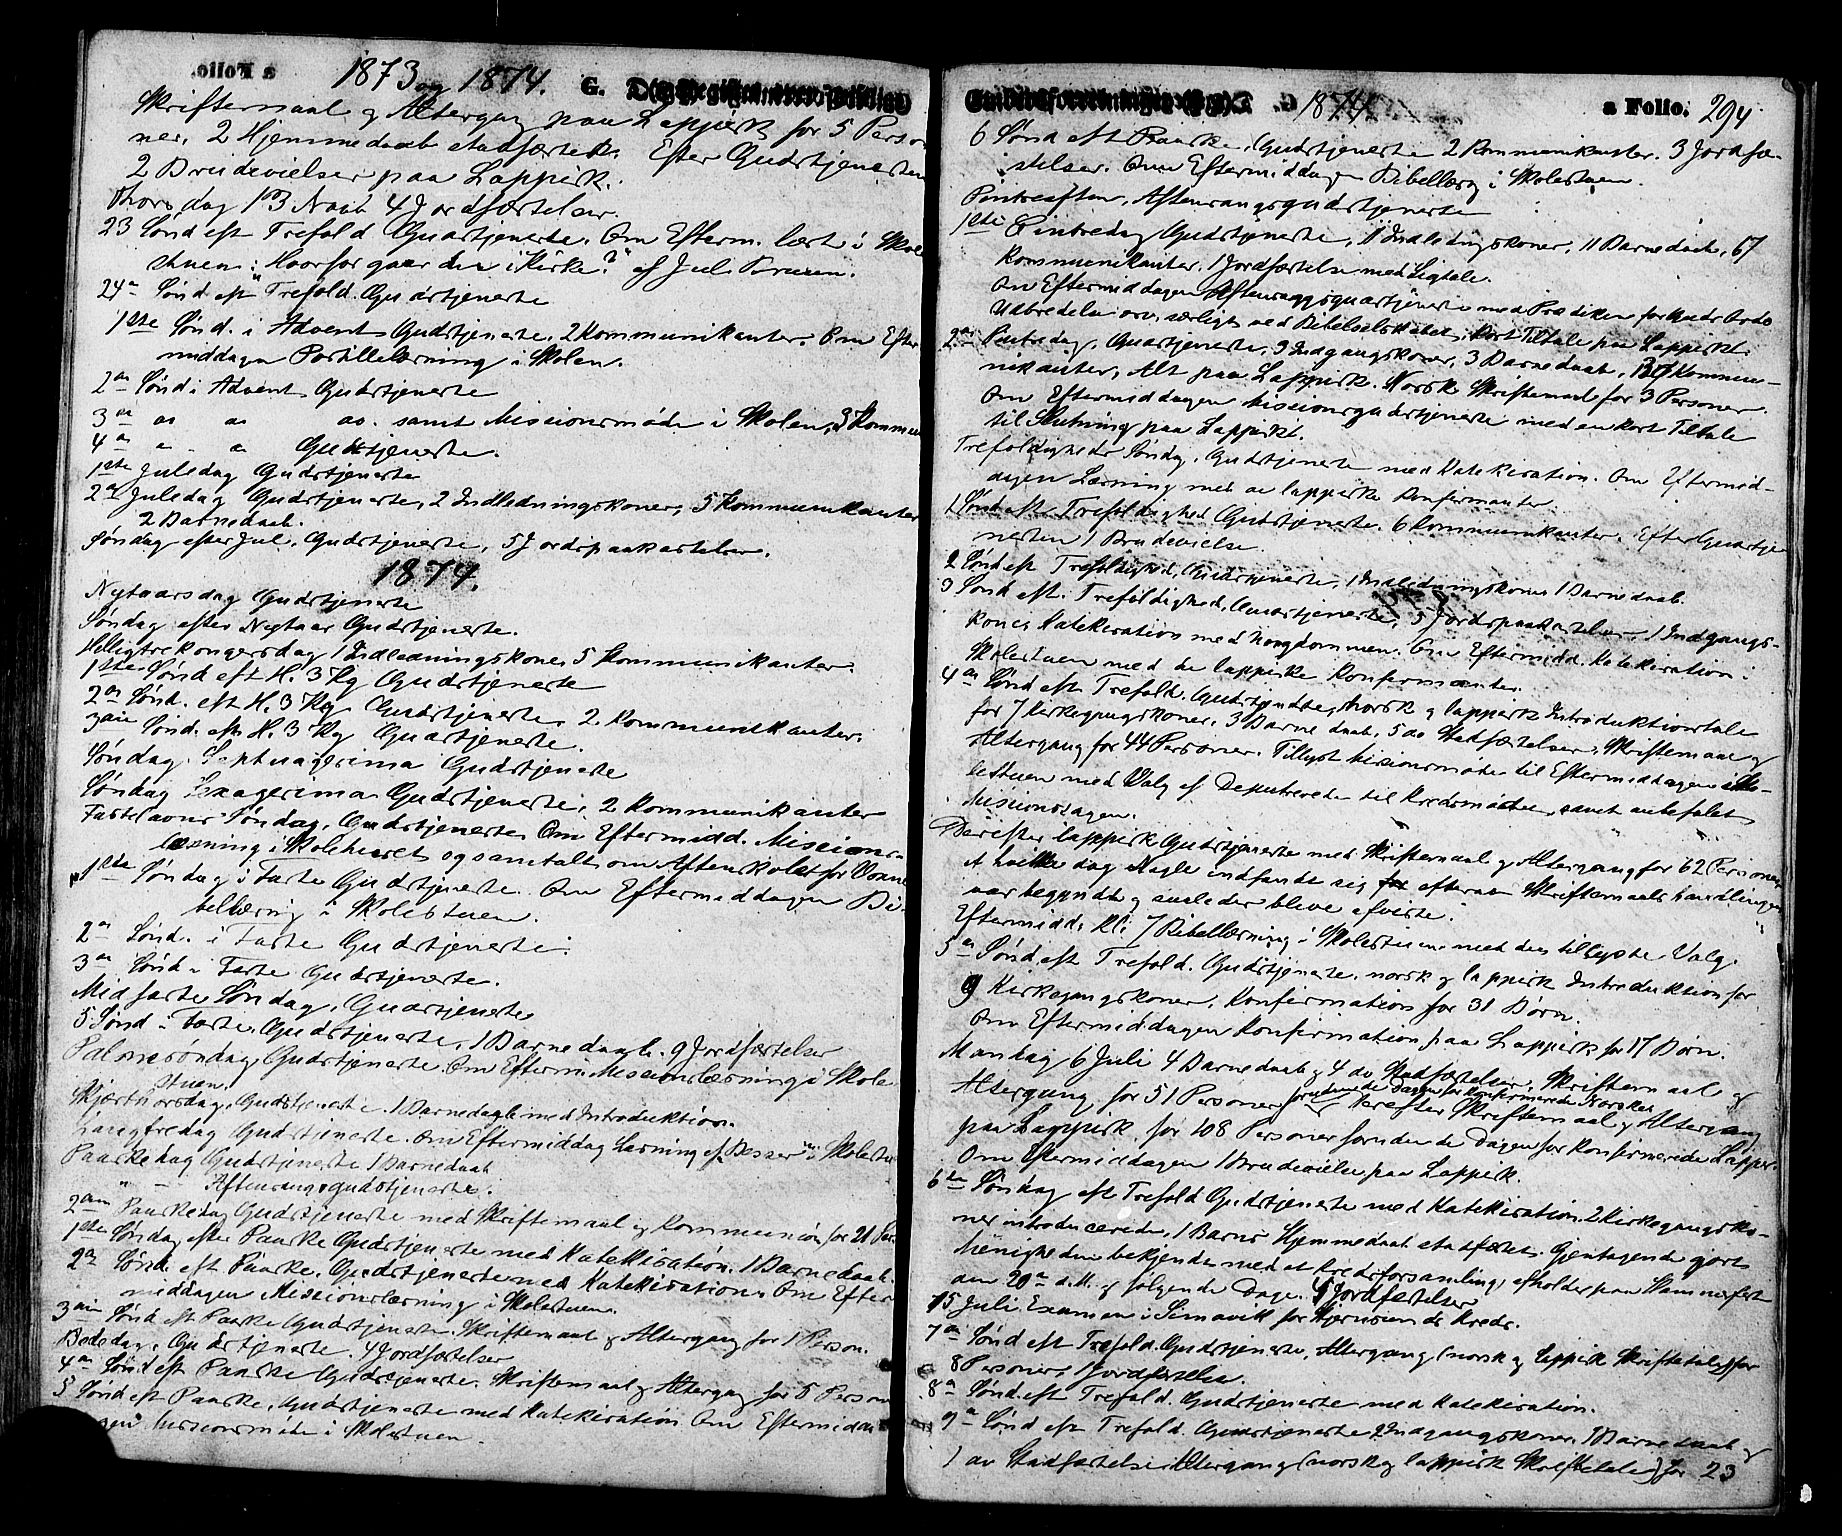 a Folio. 1873 og 1874. G.
Skriftemaal & Altergang paa Lappisk for 5 Perso-
ner, 2 Hjemmedaab stadfæstet. Efter Gudstjenesten
2 Brudevielser paa Lappisk.
Thorsdag 13 Novb 4 Jordfæstelser.
23 Sønd eft Trefold Gudstjeneste. Om Efterm. læst i Skole
stuen: "Hvorfor gaar du i Kirke?" af Jul Bruun.
24de Sønd. eft Trefold. Gudstjeneste
1ste Sønd. i Advent Gudstjeneste, 2 Kommunikanter. Om Efter
middagen Postillelæsning i Skolen.
2den Sønd i Advent Gudstjeneste
3die do do do. samt Missionsmøde i Skolen, 3 Kommun
4de " " Gudstjeneste.
1ste Juledag Gudstjeneste
2den Juledag Gudstjeneste, 2 Indledningskoner, 5 Kommunikanter
2 Barnedaab.
Søndag efter Jul, Gudstjeneste, 5 Jordspaakastelser.
1874.
Nytaarsdag Gudstjeneste
Søndag efter Nytaar Gudstjeneste.
Helligtrekongersdag 1 Indledningskone 5 Kommunikanter.
1ste Sønd eft H. 3 Kg Gudstjeneste
2den Sønd. eft H. 3 Kg Gudstjeneste. 2 Kommunikanter.
3die Sønd. eft H. 3 Kg Gudstjeneste.
Søndag Septuagesima Gudstjeneste
Søndag Sexagesima Gudstjeneste, 2 Kommunikanter
Fastelavns Søndag, Gudstjeneste Om Eftermidd. Missions-
læsning i Skolehuset og samtalt om Aftenskolet for Voxne
1ste Søndag i Faste Gudstjeneste. Om Eftermiddagen Bi-
bellæsning i Skolestuen.
2den Sønd. i Faste Gudstjeneste.
3die Sønd i Faste Gudstjeneste.
Midfaste Søndag, Gudstjeneste
5 Sønd i Faste, Gudstjeneste, 1 Barnedaab. 9 Jordfæstelser
Palmesøndag, Gudstjeneste. Om Efterm: Missionslæsning i Skole
stuen.
Skjærthorsdag, Gudstjeneste. 1 Barnedaab med Introduktion.
Langfredag Gudstjeneste. Om Eftermiddag Læsning af "Besser" i Skolestu
Paaskedag Gudstjeneste 1 Barnedaab
" - Aftensangsgudstjeneste.
2den Paaskedag Gudstjeneste med Skriftemaal og Kommunion for 21 Per
1ste Søndag efter Paaske Gudstjeneste med Katekisation. 1 Barnedaab.
2den Sønd. eft Paaske. Gudstjeneste med Katekisation. Om Efter
middagen Missionslæsning i Skolestuen.
3die Sønd eft Paaske Gudstjeneste. Skriftemaal & Altergang for 1 Person.
Bededag, Gudstjeneste. 4 Jordfæstelser
4de Sønd eft Paaske Gudstjeneste. Skriftemaal & Altergang for 8 Person
5 Sønd eft Paaske, Gudstjeneste med Katekisation Om Eftermidda
gen Missionsmøde i Skolestuen.
1874. a Folio. 294
6 Sønd eft Paaske, Gudstjeneste 2 Kommunikanter. 3 Jordfæ-
stelser. Om Eftermiddagen Bibellæsg i Skolestuen.
Pintseaften, Aftensangsgudstjeneste
1ste Pintsedag Gudstjeneste, 11 Indledningskoner, 11 Barnedaab, 67
Kommunikanter. 1 Jordfæstelse med Ligtale.
Om Eftermiddagen Aftensangsgudstjeneste med Prædiken for Guds Ords
Udbredelse osv, særligt ved Bibelselskabet, kort Tiltale paa Lappiskt.
2den Pintsedag, Gudstjeneste, 3 Indgangskoner, 3 Barnedaab, Kommu-
nikanter, Alt paa Lappisk. Norsk Skriftemaal for 3 Personer.
Om Eftermiddagen Missionsgudstjeneste med en kort Tiltale
til Slutning paa Lappiskt.
Trefoldigheds Søndag, Gudstjeneste med Katekisation. Om Eftermid-
dagen Læsning med de lappiske Konfirmanter.
1 Sønd eft Trefoldighed Gudstjeneste. 6 Kommunikanter. Efter Gudstje
nesten 1 Brudevielse.
2 Sønd eft Trefoldighed, Gudstjeneste, 1 Indledningskone 1 Barnedaab.
3 Sønd eft. Trefoldighed, Gudstjeneste, 5 Jordspaakastelser 1 Indgangs-
kone, Katekisation med Ungdommen. Om Eftermidd. Katekisation i
Skolestuen med de lappiske Konfirmanter.
4de Sønd eft Trefold. Gudstjeneste, norsk & lappisk Introduktionstale
for 7 Kirkegangskoner, 3 Barnedaab, 5 do Stadfæstelser, Skriftemaal &
Altergang for 44 Personer. Tillyst Missionsmøde til Eftermiddagen i Sko-
lestuen med Valg af Deputerede til Kredsmødet, samt anbefalet
Missionssagen.
Derefter lappisk Gudstjeneste med Skriftemaal & Altergang for 62 Personer
At hvilke dag Nogle indfandt sig efterat Skriftemaals handlingen
var begyndt & saaledes bleve afviste.
Eftermidd. Kl: 7 Bibellæsning i Skolestuen med den tillyste Valg.
5de Sønd. eft Trefold. Gudstjeneste. norsk & lappisk Introduktion for
9 Kirkegangskoner, Konfirmation for 31 Børn.
Om Eftermiddagen Konfirmation paa Lappisk for 17 Børn.
Mandag 6 Juli 4 Barnedaab & 4 do Stadfæstelser, Skriftemaal &
Altergang for 51 Personer foruden de Dagen før konfirmerede Norske. Derefter Skriftemaal & Altergang
paa Lappisk for 108 Personer foruden de Dagen før konfirmerede Lapper.
Om Eftermiddagen 1 Brudevielse paa Lappisk.
6te Søndag eft Trefold Gudstjeneste med Katekisation. 2 Kirkegangsko-
ner introducerede, 1 Barns Hjemmedaab stadfæstet. Gjentagende gjort
Menigheden bekjendt med at Kredsforsamling afholdes paa Hammerfest
den 20de d.M. & følgende Dage. 4 Jordfæstelser
15 Juli Examen i Simavik for Hjemsunds Kreds.
7de Sønd eft Trefold. Gudstjeneste, Altergang (norsk & lappisk Skriftetale) for
8 Personer, 1 Jordfæstelse.
8de Sønd. eft Trefold. Gudstjeneste med Katekisation.
9de Sønd eft Trefold. Gudstjeneste 2 Indgangskoner, 1 Barnedaab &
1 do Stadfæstelse. Altergang (norsk & lappisk Skriftetale) for 23